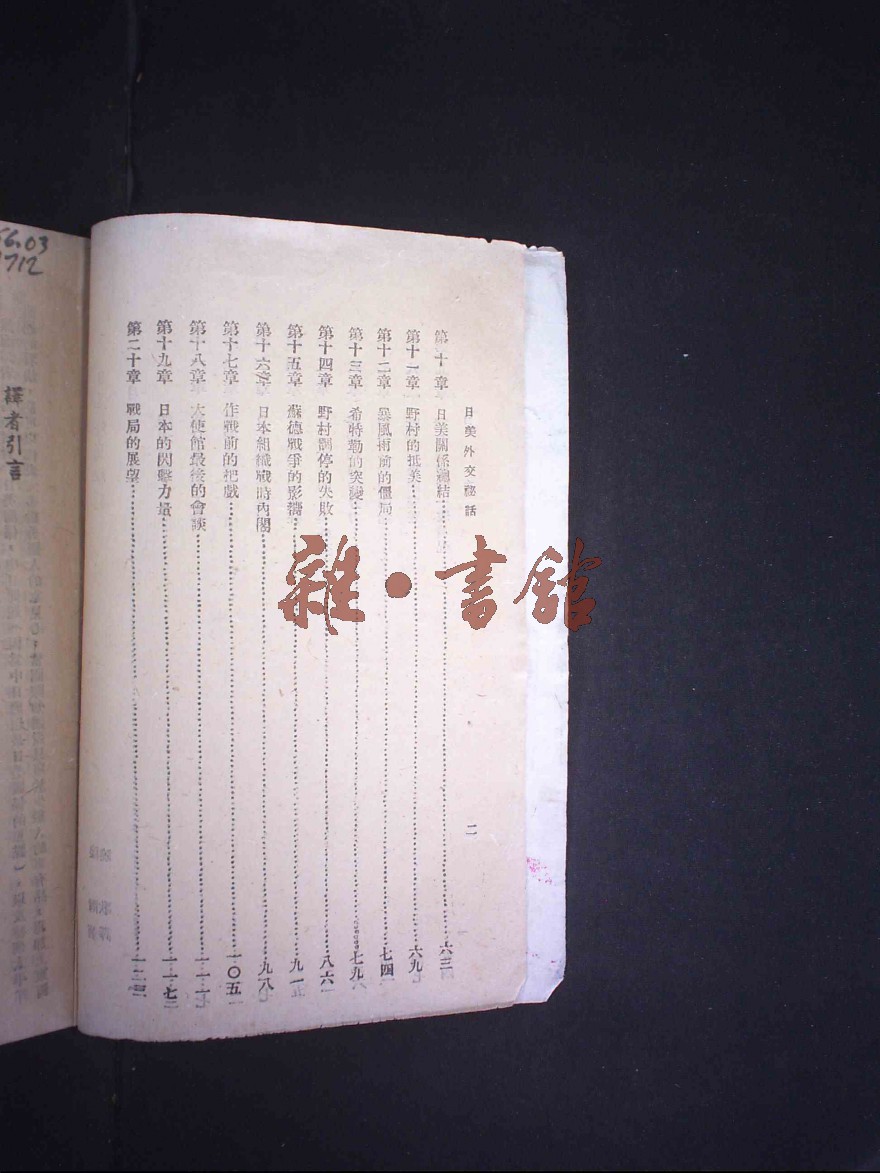 日美外交祕話
二
第十章 日美關係總結……六三
第十一章 野村的抵美……六九
第十二章 暴風雨前的僵局……七四
第十三章 希特勒的突變……七九
第十四章 野村調停的失敗……八六
第十五章 蘇德戰爭的影響……九一
第十六章 日本組織戰時內閣……九八
第十七章 作戰前的把戲……一〇五
第十八章 大使館最後的會談……一一一
第十九章 日本的閃擊力量……一一七
第二十章 戰局的展望……
譯者引言
56.03
1712
雜•書館